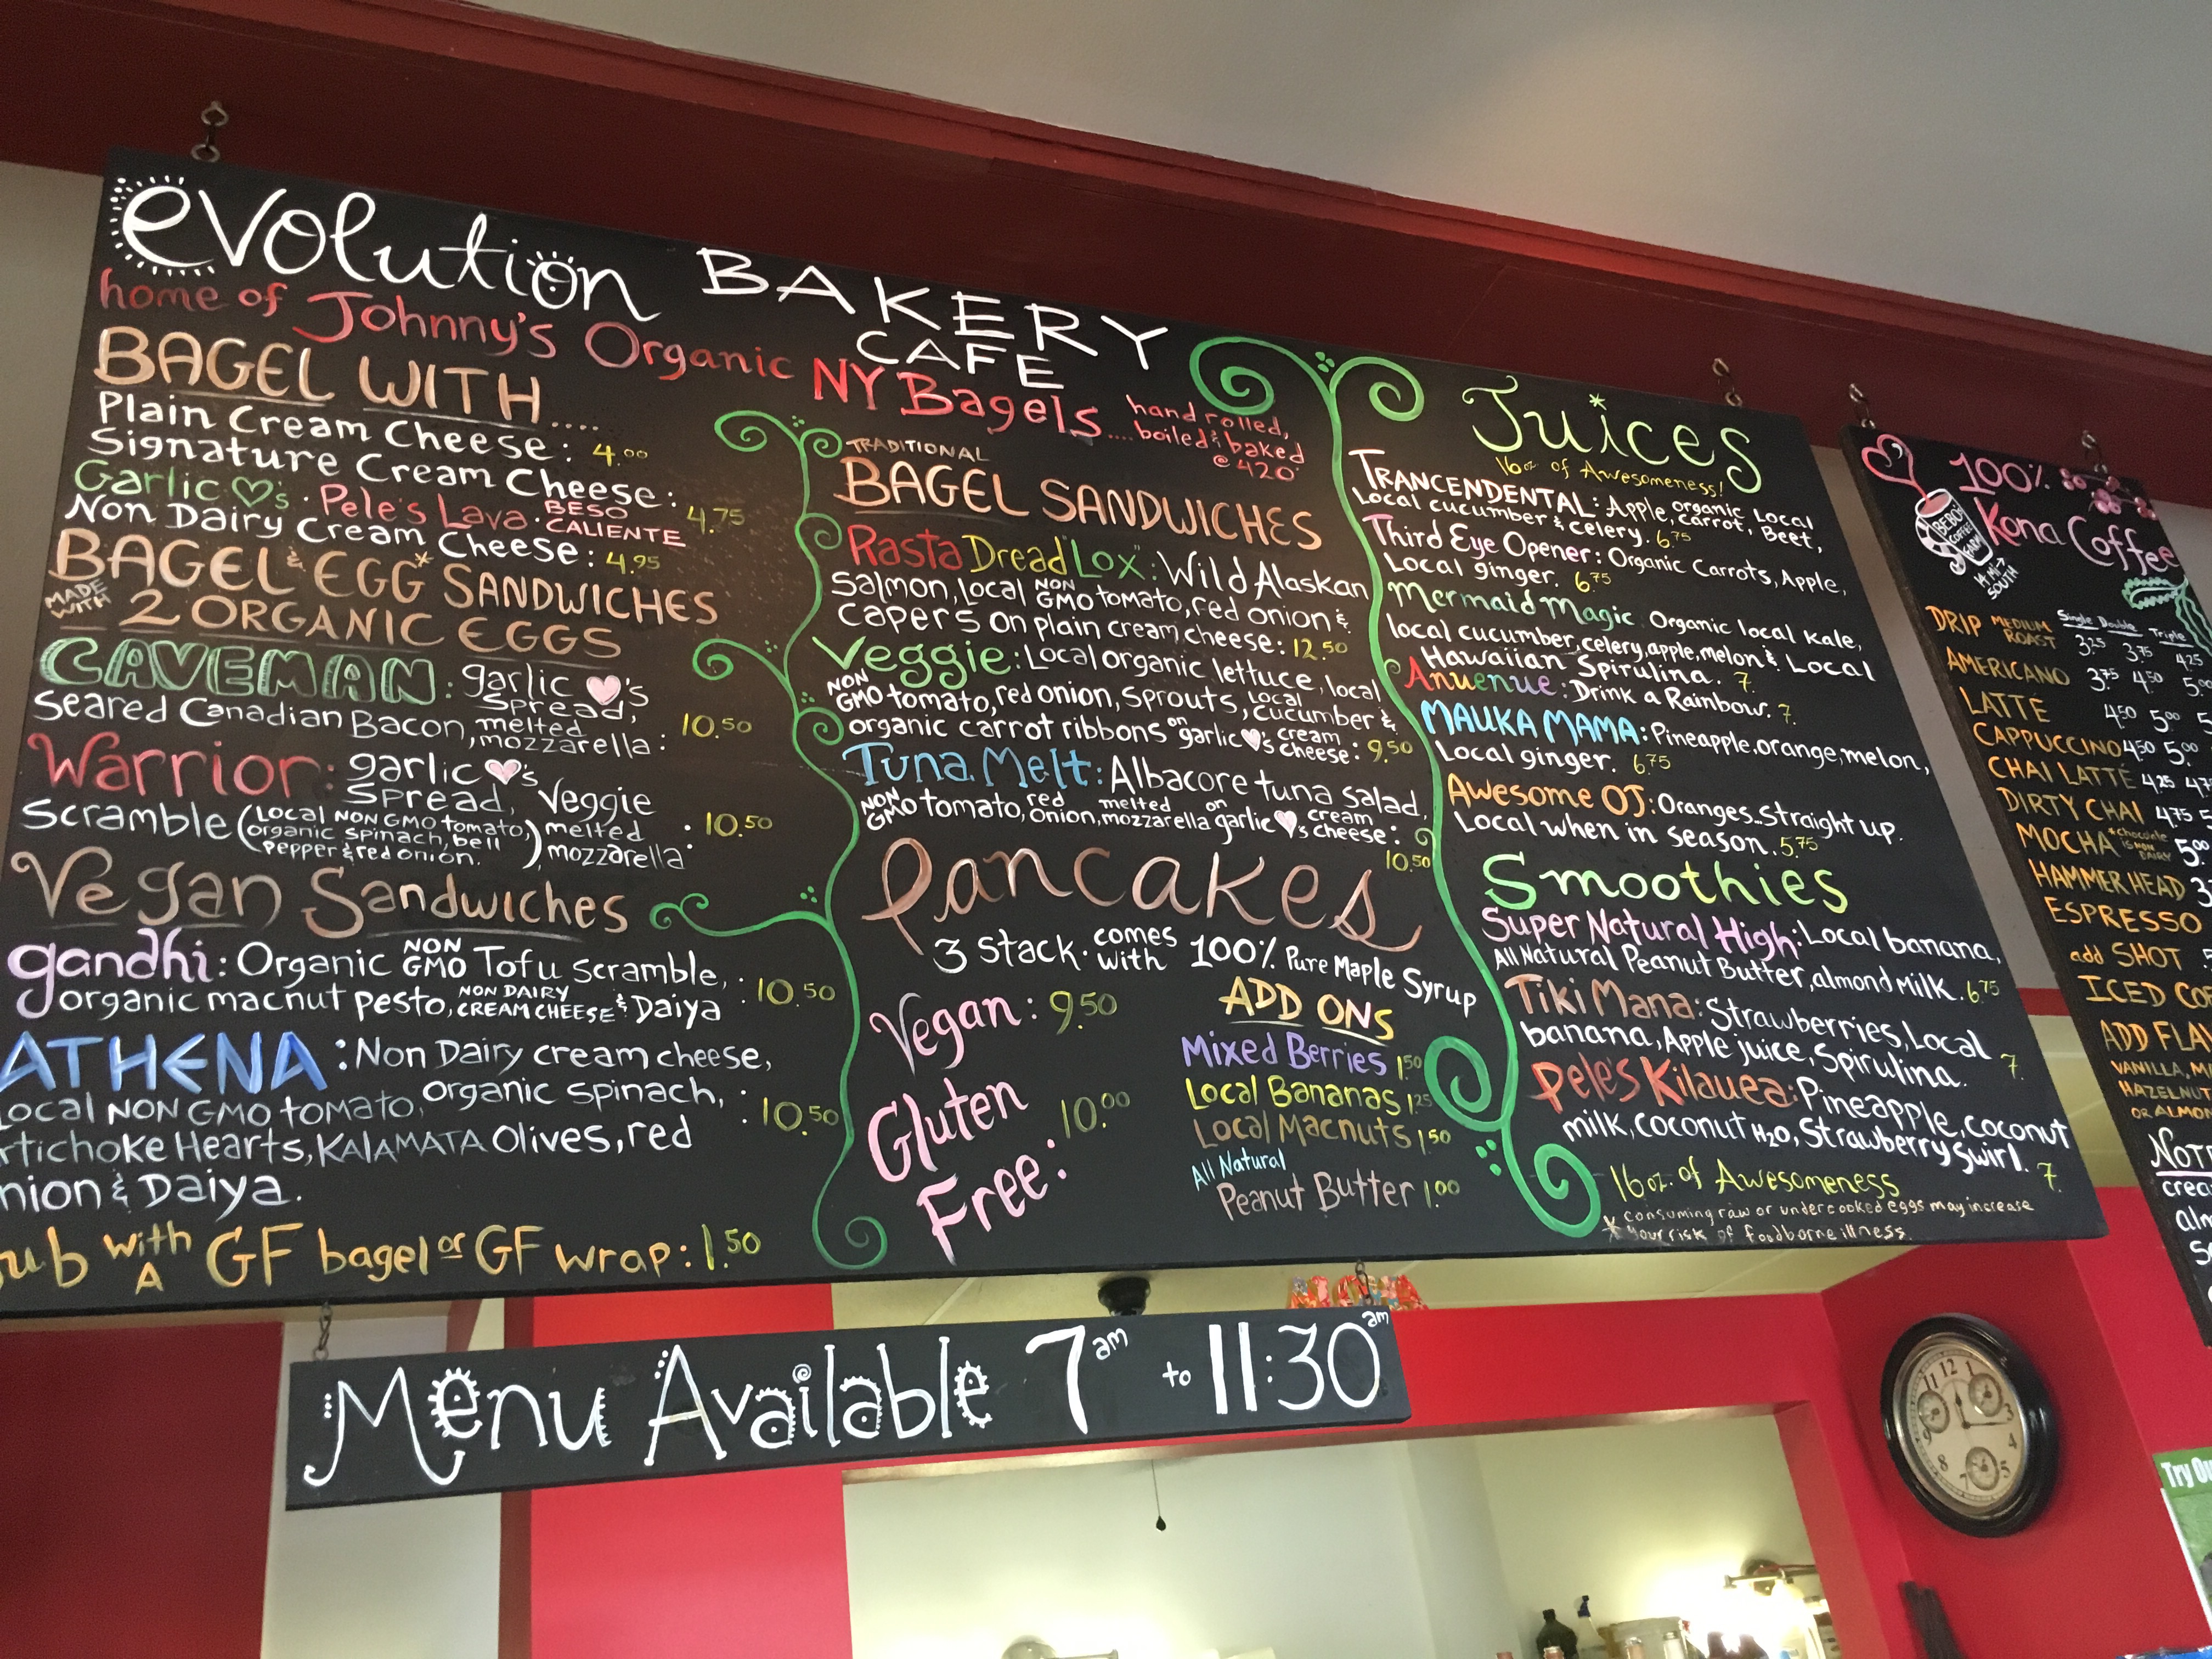 evolution BAKERY
CAFE
home of Johnny's Organic NY Bagels....
hand rolled,
boiled & baked
@ 420°
BAGEL WITH....
Plain Cream Cheese: 4.00
Signature Cream Cheese:
Garlic ♡'s · Pele's Lava · BESO CALIENTE 4.75
Non Dairy Cream Cheese: 4.95
BAGEL & EGG* SANDWICHES
MADE WITH 2 ORGANIC EGGS
CAVEMAN: garlic ♥'s spread,
Seared Canadian Bacon, melted mozzarella: 10.50
Warrior: garlic ♥'s spread, Veggie
Scramble (Local NON GMO tomato, organic spinach, bell pepper & red onion.) melted mozzarella: 10.50
Vegan Sandwiches
gandhi: Organic NON GMO Tofu scramble,
organic macnut pesto, NON DAIRY CREAM CHEESE & Daiya : 10.50
ATHENA: Non Dairy cream cheese,
Local NON GMO tomato, organic spinach, : 10.50
rtichoke Hearts, KALAMATA Olives, red
nion & Daiya.
ub with A GF bagel or GF wrap: 1.50
TRADITIONAL
BAGEL SANDWICHES
Rasta Dread "Lox": Wild Alaskan
Salmon, local NON GMO tomato, red onion &
capers on plain cream cheese: 12.50
Veggie: Local organic lettuce, local
NON GMO tomato, red onion, Sprouts, Local cucumber &
organic carrot ribbons on garlic ♥'s cream cheese: 9.50
Tuna Melt: Albacore tuna salad,
NON GMO tomato, red onion, melted mozzarella on garlic ♥'s cream cheese:
10.50
Pancakes
3 Stack. comes with 100% Pure Maple Syrup
Vegan: 9.50
Gluten
Free: 10.00
ADD ONS
Mixed Berries 1.50
Local Bananas 1.25
Local Macnuts 1.50
All Natural
Peanut Butter 1.00
Juices
16oz of Awesomeness!
TRANCENDENTAL: Apple, organic Local carrot, Beet,
Local cucumber & celery. 6.75
Third Eye Opener: Organic Carrots, Apple,
Local ginger. 6.75
Mermaid Magic: Organic local Kale,
local cucumber, celery, apple, melon & Local
Hawaiian Spirulina. 7.
Anuenue: Drink a Rainbow. 7.
MAUKA MAMA: Pineapple, orange, melon,
Local ginger. 6.75
Awesome OJ: Oranges...Straight up.
Local when in season. 5.75
Smoothies
Super Natural High: Local banana,
All Natural Peanut Butter, almond milk. 6.75
Tiki Mana: Strawberries, Local
banana, Apple juice, Spirulina. 7.
Pele's Kilauea: Pineapple, coconut
milk, coconut H2O, Strawberry swirl. 7.
16oz. of Awesomeness
* consuming raw or undercooked eggs may increase
your risk of foodborne illness.
100%
Kona Coffee
COFFEE
14 Mi →
SOUTH
Single Double Triple
DRIP MEDIUM ROAST 3.25 3.75 4.25
AMERICANO 3.75 4.50 5.00
LATTÉ 4.50 5.00 5
CAPPUCCINO 4.50 5.00
CHAI LATTÉ 4.25 4.7
DIRTY CHAI 4.75 5
MOCHA *chocolate is NON DAIRY 5.00
HAMMER HEAD 3.
ESPRESSO
add SHOT
ICED CO
ADD FLA
VANILLA,
HAZELNUT
OR ALMO
NOT
crea
alm
Menu Available 7am to 11:30am
12 1 3 5 7 8 9 11
Try Ou